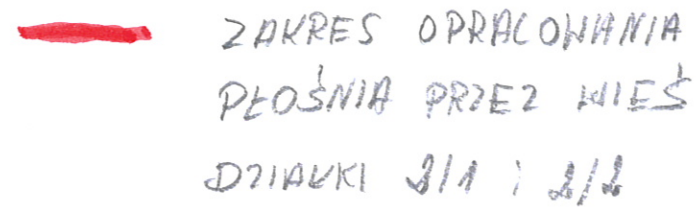 ZAKRES OPRACOWANIA
PŁOŚNIA PRZEZ WIEŚ
DZIAŁKI 2/1 i 2/2